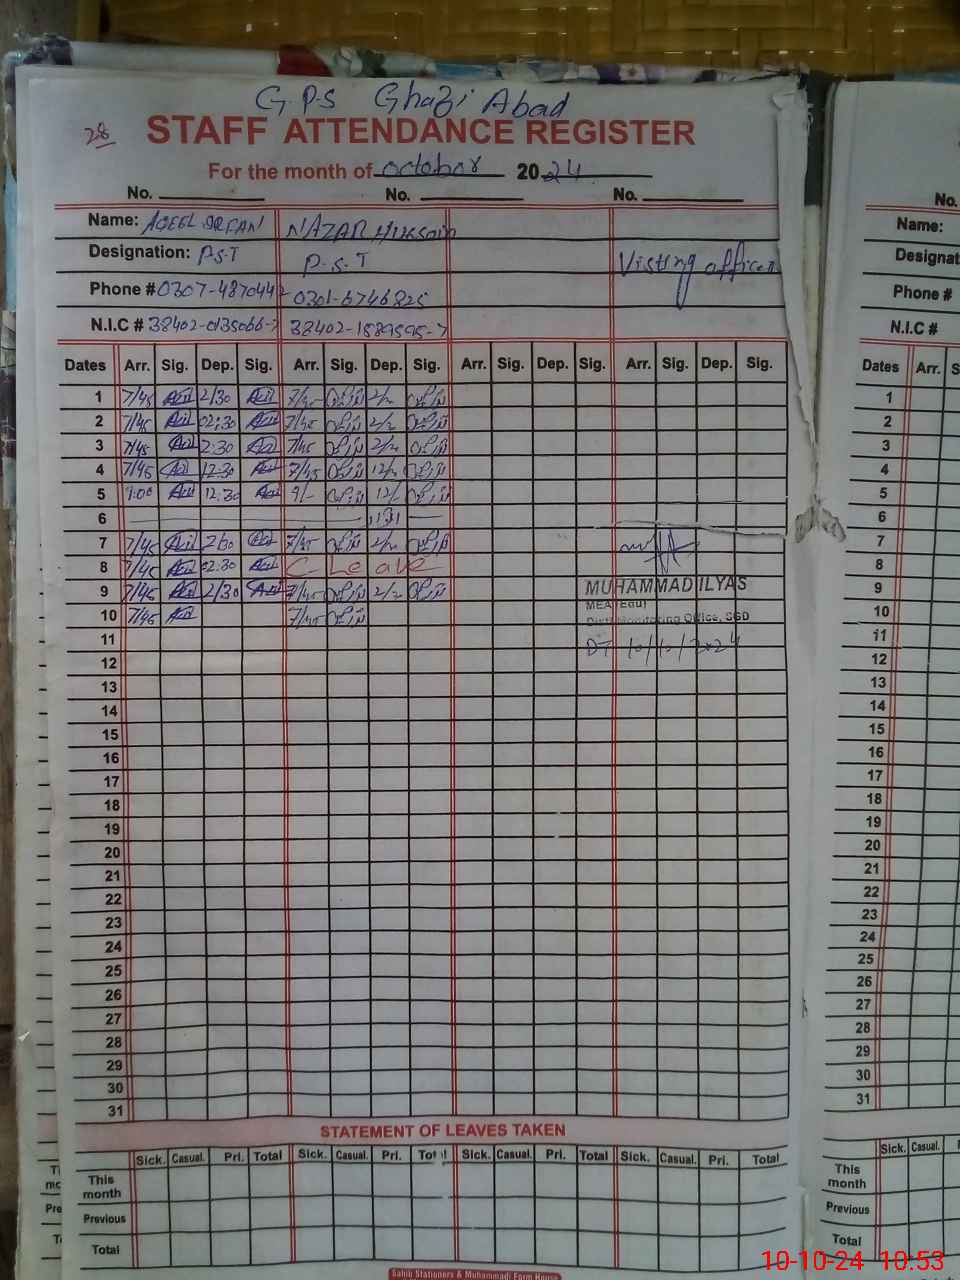 G.P.S Ghazi Abad
28 STAFF ATTENDANCE REGISTER
For the month of october 2024
No. No. No.
Name: AQEEL IRFAN NAZAR Hussain
Designation: P.S.T P.S.T Visting officer
Phone # 0307-4870442 0301-6746825
N.I.C # 38402-0135066-7 38402-1589595-7
Dates Arr. Sig. Dep. Sig. Arr. Sig. Dep. Sig. Arr. Sig. Dep. Sig. Arr. Sig. Dep. Sig.
1 7/45 2/30 7/45
2 7/45 02:30 7/45
3 7/45 2:30 7/45
4 7/45 12:30 7/45
5 9:00 12:30 9/- 12/-
6
7 7/45 7/45
8 7/45 02:30 C Leave
9 7/45 2/30 7/45
MUHAMMAD ILYAS
MEA (Edu)
10 7/45 7/45
Distt Monitoring Office, SGD
11
DT 10/10/2024
12
13
14
15
16
17
18
19
20
21
22
23
24
25
26
27
28
29
30
31
STATEMENT OF LEAVES TAKEN
Sick. Casual. Pri. Total Sick. Casual. Pri. Total Sick. Casual. Pri. Total Sick. Casual. Pri. Total
This month
Previous
Total
Sahib Stationers & Muhammadi Form House
No.
Name:
Designat
Phone #
N.I.C #
Dates Arr. S
1
2
3
4
5
6
7
8
9
10
11
12
13
14
15
16
17
18
19
20
21
22
23
24
25
26
27
28
29
30
31
Sick. Casual.
This month
Previous
Total
10-10-24 10:53